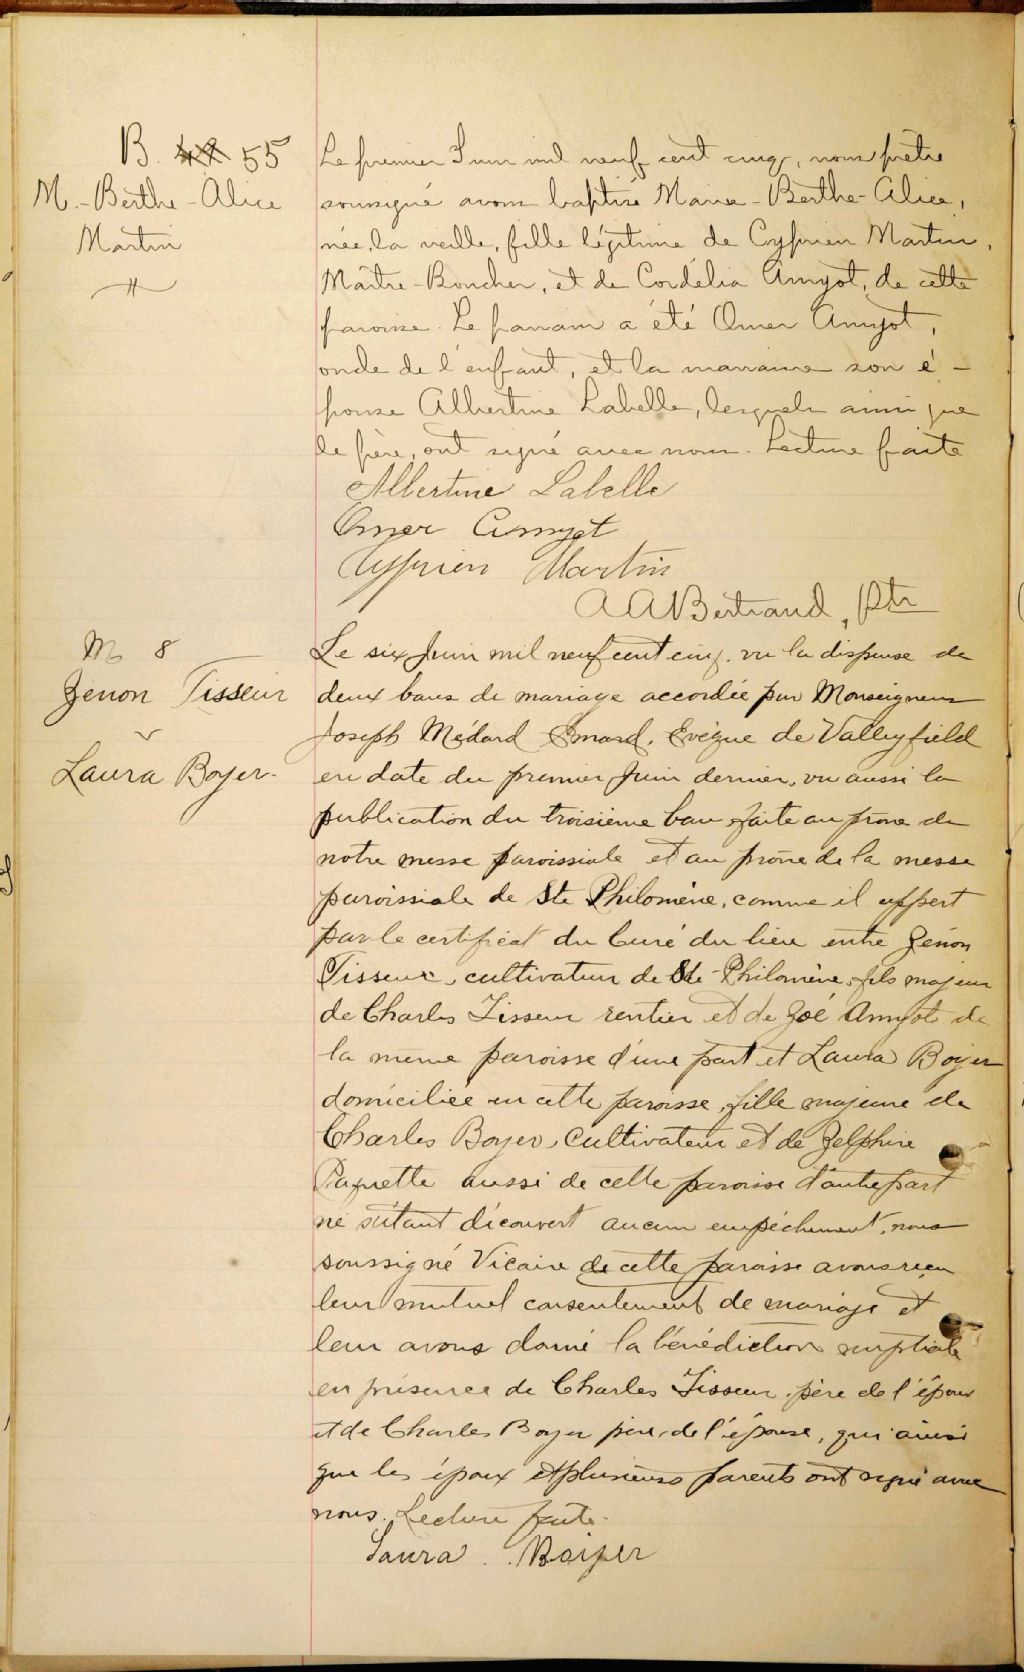 B. 55
M.-Berthe-Alice
Martin
Le premier Juin mil neuf cent cinq, nous prêtre
soussigné avons baptisé Marie-Berthe-Alice,
née, la veille, fille légitime de Cyprien Martin,
Maître-Boucher, et de Cordélia Amyot, de cette
paroisse. Le parrain a été Omer Amyot,
oncle de l'enfant, et la marraine son é-
pouse Albertine Labelle, lesquels ainsi que
le père, ont signé avec nous. Lecture faite
Albertine Labelle
Omer Amyot
Cyprien Martin
A A Bertrand, Ptr
M 8
Zenon Tisseur
Laura Boyer.
Le six Juin mil neuf cent cinq. vu la dispense de
deux bans de mariage accordée par Monseigneur
Joseph Médard Emard, Evêque de Valleyfield
en date du premier Juin dernier, vu aussi la
publication du troisième ban faite au prone de
notre messe paroissiale et au prône de la messe
paroissiale de Ste Philomène, comme il appert
par le certificat du Curé du lieu entre Zénon
Tisseur, cultivateur de Ste-Philomène, fils majeur
de Charles Tisseur rentier et de Zoé Amyot de
la même paroisse d'une part et Laura Boyer
domiciliée en cette paroisse, fille majeure de
Charles Boyer, Cultivateur et de Zelphire
Paquette aussi de cette paroisse d'autre part
ne s'étant découvert aucun empêchement, nous
soussigné Vicaire de cette paroisse avons reçu
leur mutuel consentement de mariage et
leur avons donné la bénédiction nuptiale
en présence de Charles Tisseur, père de l'époux
et de Charles Boyer père de l'épouse, qui ainsi
que les époux et plusieurs parents ont signé avec
nous. Lecture faite.
Laura Boyer